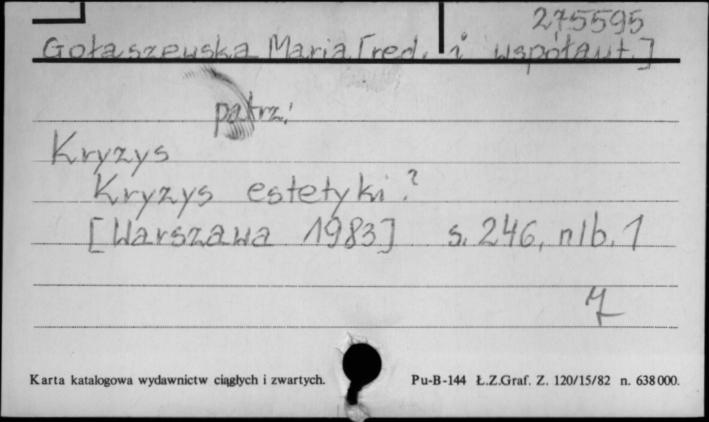 275595
Gołaszewska Maria [red. i współaut.]
patrz:
Kryzys
Kryzys estetyki?
[Warszawa 1983] s. 246, nlb. 1
7
Karta katalogowa wydawnictw ciągłych i zwartych. Pu-B-144 Ł.Z.Graf. Z. 120/15/82 n. 638000.